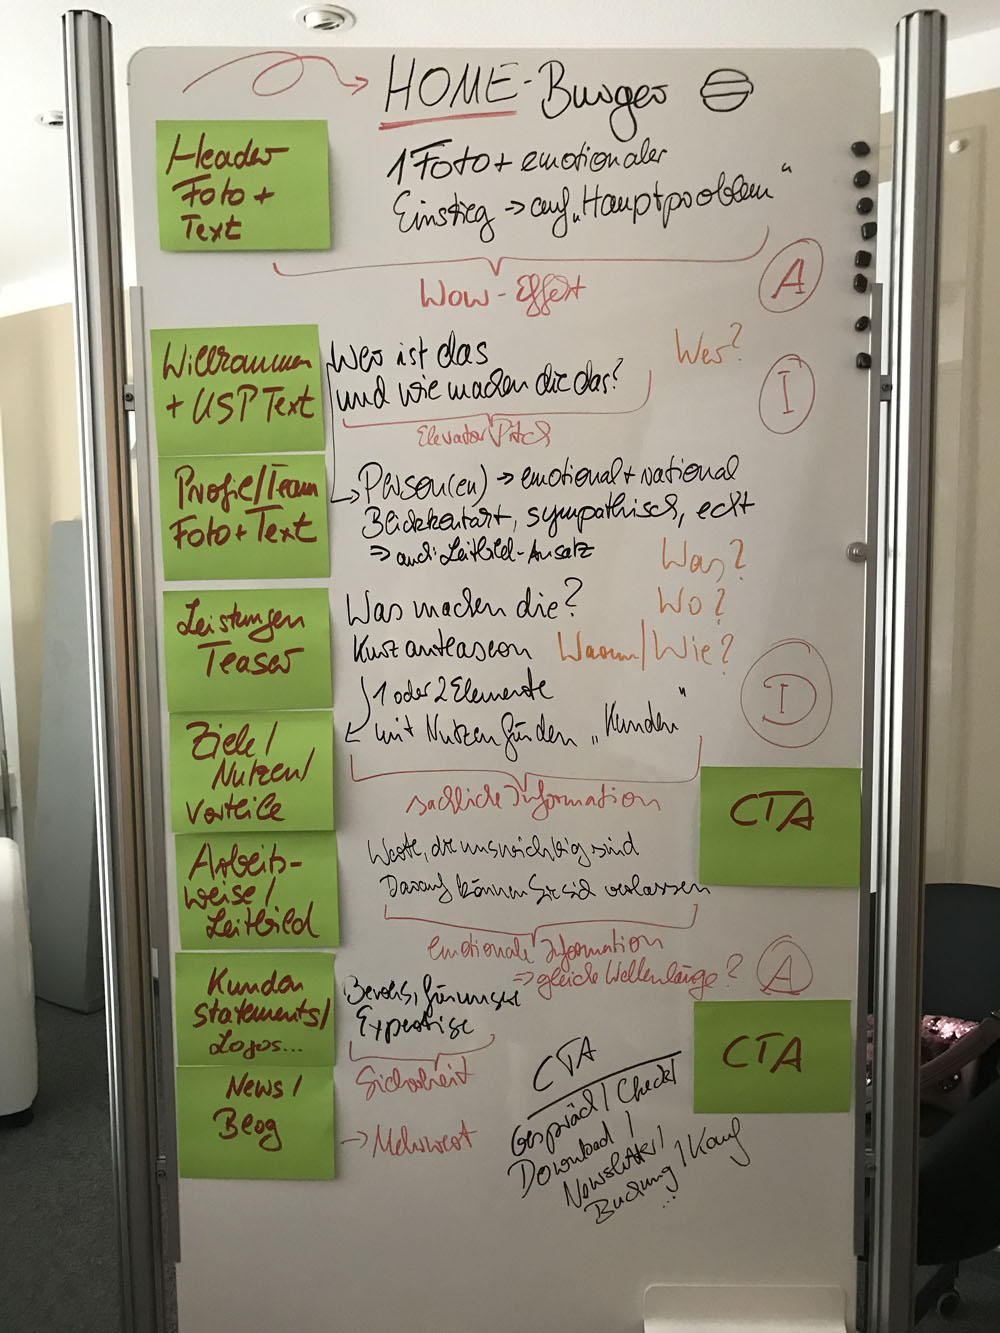 HOME-Burger
Header
Foto +
Text
1 Foto + emotionaler
Einstieg → auf „Hauptproblem“
Wow-Effekt
A
Willkommen
+ USP Text
Wer ist das
und wie machen die das?
Wer?
I
Elevator Pitch
Profil/Team
Foto + Text
Person(en) → emotional + rational
Blickkontakt, sympathisch, echt
⇒ auch Leitbild-Ansatz
Was?
Leistungen
Teaser
Was machen die?
Wo?
Kurz anteasern
Warum/Wie?
1 oder 2 Elemente
mit Nutzen für den „Kunden“
D
Ziele/
Nutzen/
Vorteile
sachliche Information
CTA
Arbeits-
weise/
Leitbild
Werte, die uns wichtig sind
Darauf können Sie sich verlassen
emotionale Information
⇒ gleiche Wellenlänge?
A
Kunden
statements/
Logos...
Beweis, für unsere
Expertise
Sicherheit
CTA
News/
Blog
→ Mehrwert
CTA
Gespräch/Check/
Download/
Newsletter/
Buchung/Kauf
...